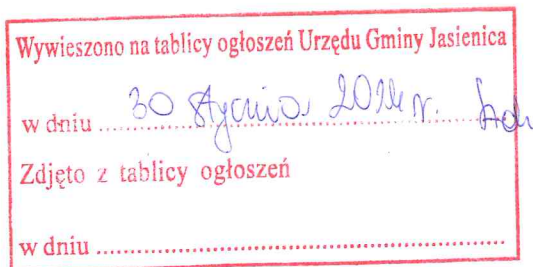 Wywieszono na tablicy ogłoszeń Urzędu Gminy Jasienica
w dniu 30 stycznia r.
Zdjęto z tablicy ogłoszeń
w dniu